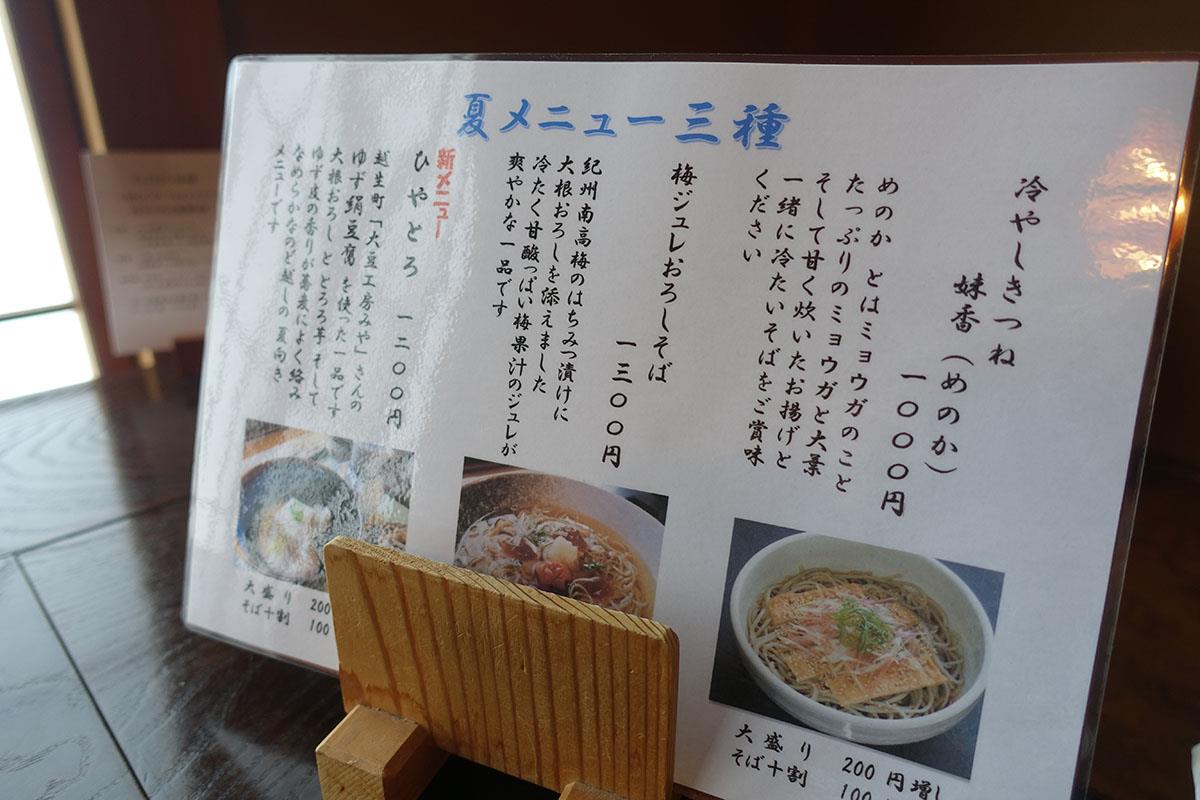 夏メニュー三種
冷やしきつね
妹香（めのか）
一〇〇〇円
めのか とはミョウガのこと
たっぷりのミョウガと大葉
そして甘く炊いたお揚げと
一緒に冷たいそばをご賞味
ください
梅ジュレおろしそば
一三〇〇円
紀州南高梅のはちみつ漬けに
大根おろしを添えました
冷たく甘酸っぱい梅果汁のジュレが
爽やかな一品です
新メニュー
ひやとろ 一二〇〇円
越生町「大豆工房みや」さんの
ゆず絹豆腐 を使った一品です
大根おろし と とろろ芋 そして
ゆず皮の香りが蕎麦によく絡み
なめらかなのど越しの 夏向き
メニューです
大盛り 200
そば十割 100
大盛り 200 円増し
そば十割 100